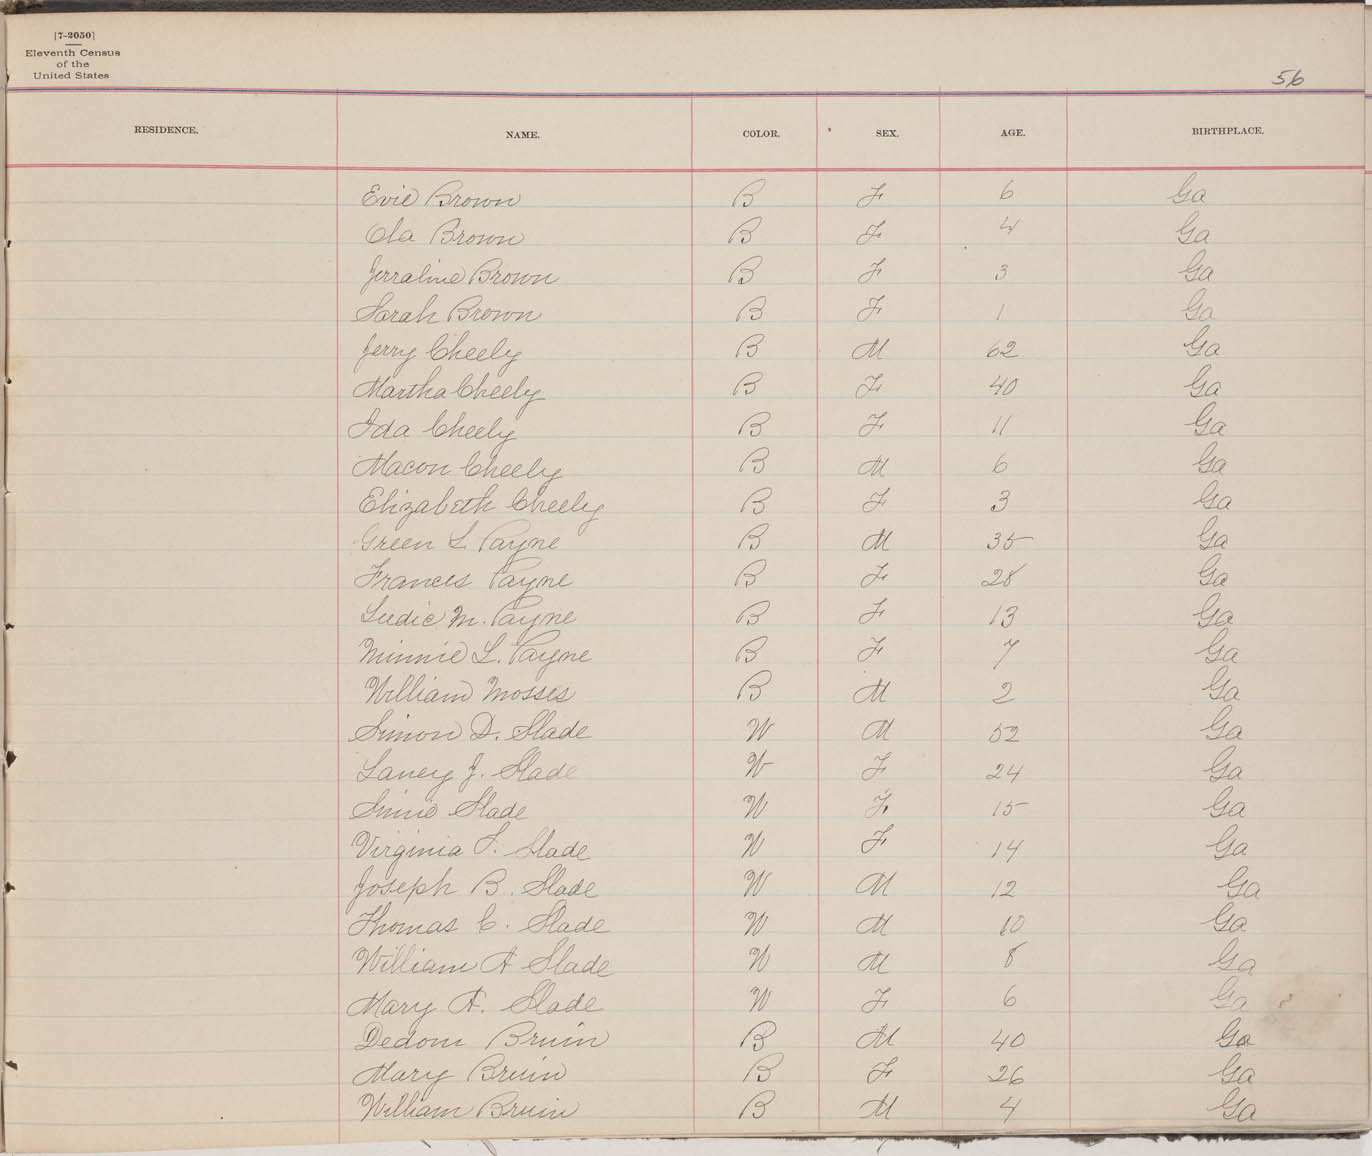 [7-2050]
Eleventh Census
of the
United States
56
RESIDENCE. NAME. COLOR. SEX. AGE. BIRTHPLACE.
Evie Brown B F 6 Ga
Ola Brown B F 4 Ga
Jerraline Brown B F 3 Ga
Sarah Brown B F 1 Ga
Jerry Cheely B M 62 Ga
Martha Cheely B F 40 Ga
Ida Cheely B F 11 Ga
Macon Cheely B M 6 Ga
Elizabeth Cheely B F 3 Ga
Green L. Payne B M 35 Ga
Frances Payne B F 28 Ga
Ludie M. Payne B F 13 Ga
Minnie L. Payne B F 7 Ga
William Mosses B M 2 Ga
Simon D. Slade W M 52 Ga
Laney J. Slade W F 24 Ga
Slade W F 15 Ga
Virginia Slade W F 14 Ga
Joseph B. Slade W M 12 Ga
Thomas C. Slade W M 10 Ga
William A Slade W M 8 Ga
Mary A. Slade W F 6 Ga
Dedom Bruin B M 40 Ga
Mary Bruin B F 26 Ga
William Bruin B M 4 Ga